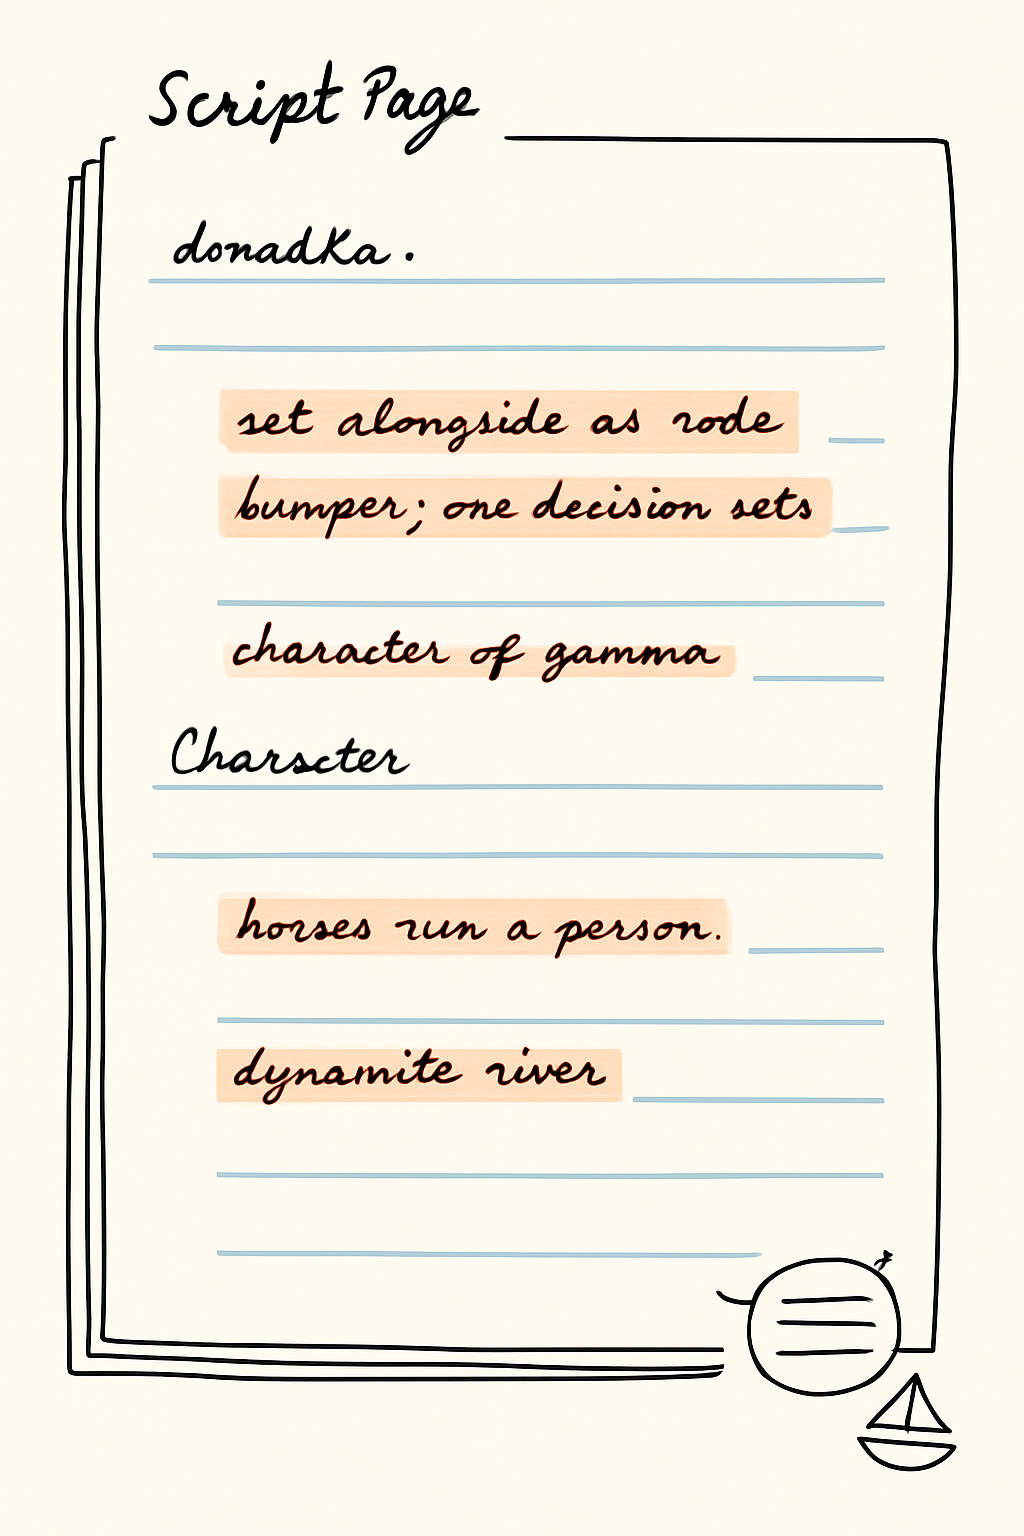 Script Page
donadka.
set alongside as rode
bumper; one decision sets
character of gamma
Charscter
horses run a person.
dynamite river